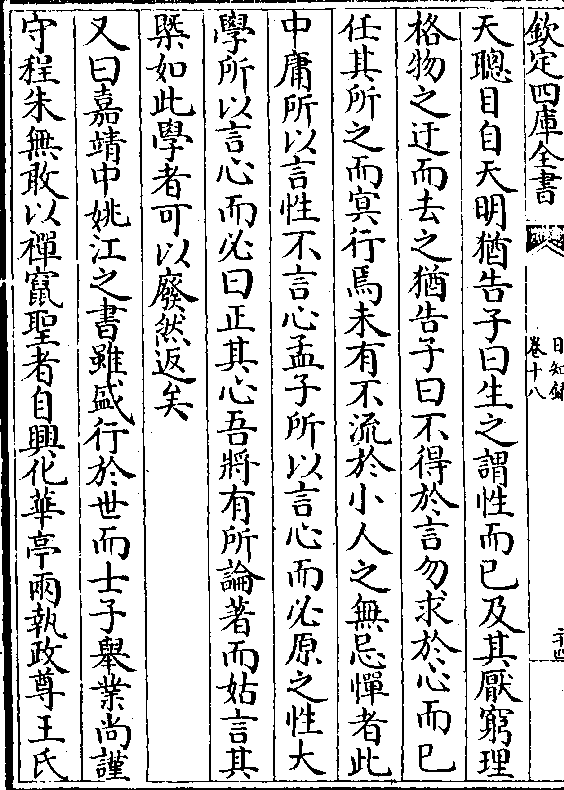 欽定四庫全書
日知錄
卷十八
天聰目自天明猶告子曰生之謂性而已及其厭窮理
格物之迂而去之猶告子曰不得於言勿求於心而已
任其所之而冥行焉未有不流於小人之無忌憚者此
中庸所以言性不言心孟子所以言心而必原之性大
學所以言心而必曰正其心吾將有所論著而姑言其
槩如此學者可以廢然返矣
又曰嘉靖中姚江之書雖盛行於世而士子舉業尚謹
守程朱無敢以禪竄聖者自興化華亭兩執政尊王氏